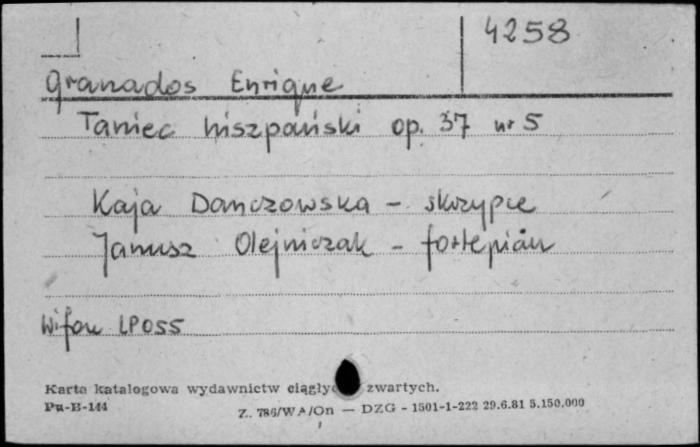 4258
Granados Enrique
Taniec hiszpański op. 37 nr 5
Kaja Danczowska - skrzypce
Janusz Olejniczak - fortepian
Wifon LP055
Karta katalogowa wydawnictw ciągły zwartych.
Pu-B-144
Z. 786/WA/On — DZG - 1501-1-222 29.6.81 5.150.000